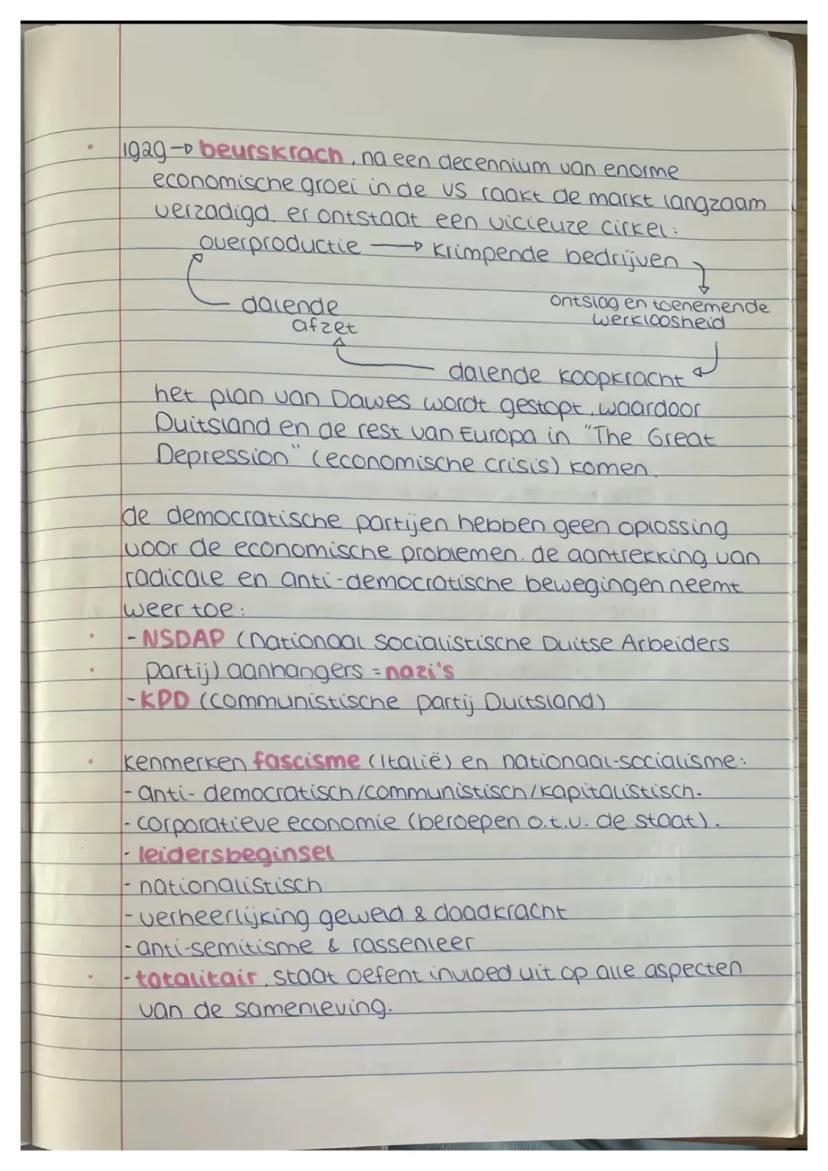 1929 → beurskrach, na een decennium van enorme
economische groei in de VS raakt de markt langzaam
verzadigd. er ontstaat een vicieuze cirkel:
overproductie → krimpende bedrijven
ontslag en toenemende
werkloosheid
dalende koopkracht
dalende
afzet
het plan van Dawes wordt gestopt, waardoor
Duitsland en de rest van Europa in "The Great
Depression" (economische crisis) komen.
de democratische partijen hebben geen oplossing
voor de economische problemen. de aantrekking van
radicale en anti-democratische bewegingen neemt
weer toe:
- NSDAP (nationaal socialistische Duitse Arbeiders
partij) aanhangers = nazi's
- KPD (communistische partij Duitsland)
kenmerken fascisme (Italië) en nationaal-socialisme:
- anti-democratisch/communistisch/kapitalistisch.
- corporatieve economie (beroepen o.t.v. de staat).
- leidersbeginsel
- nationalistisch
- verheerlijking geweld & daadkracht
- anti-semitisme & rassenleer
- totalitair, staat oefent invloed uit op alle aspecten
van de samenleving.